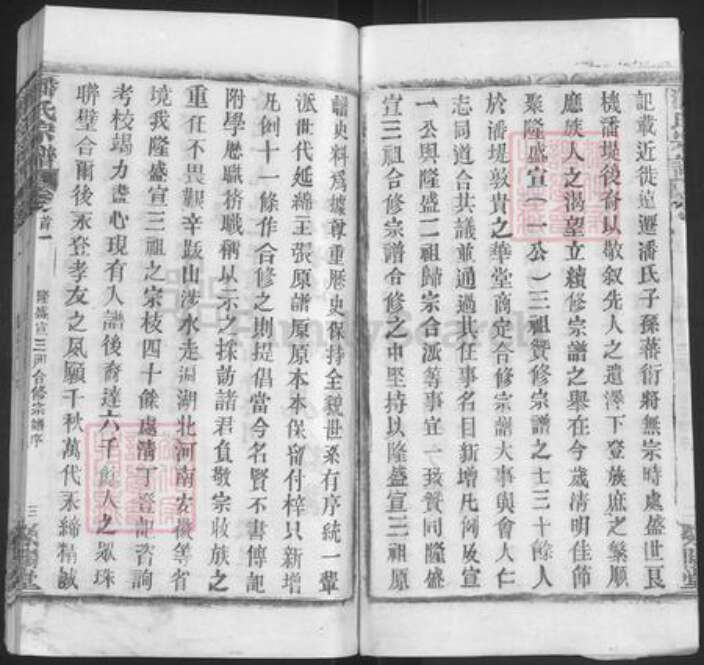 記載近徙遠遷潘氏子孫蕃衍將無宗時處盛世良
機潘堤後裔以敬叙先人之遺澤下登族庶之繁順
應族人之渴望立續修宗譜之舉在今歲清明佳節
聚隆盛宣(一公)三祖贊修宗譜之士三十餘人
於潘堤敦貴之華堂商定合修宗譜大事與會人仁
志同道合共議並通過其任事名目新增凡例及宣
一公與隆盛二祖歸宗合派等事宜一致贊同隆盛
宣三祖合修宗譜合修之中堅持以隆盛宣三祖原
譜史料爲據尊重歷史保持全貌世系有序統一輩
派世代延綿主張原譜原原本本保留付梓只新增
凡例十一條作合修之則提倡當今名賢不書傳記
附學歷職務職稱以示之採訪諸君負敬宗收族之
重任不畏艱辛跋山涉水走遍湖北河南安徽等省
境我隆盛宣三祖之宗枝四十餘處清丁登記咨詢
考校竭力盡心現有入譜後裔達六千餘人之衆珠
聯璧合爾後永登孝友之風願千秋萬代永締精誠
潘氏宗譜
卷之首一
隆盛宣三祖合修宗譜序
三
FamilySearch